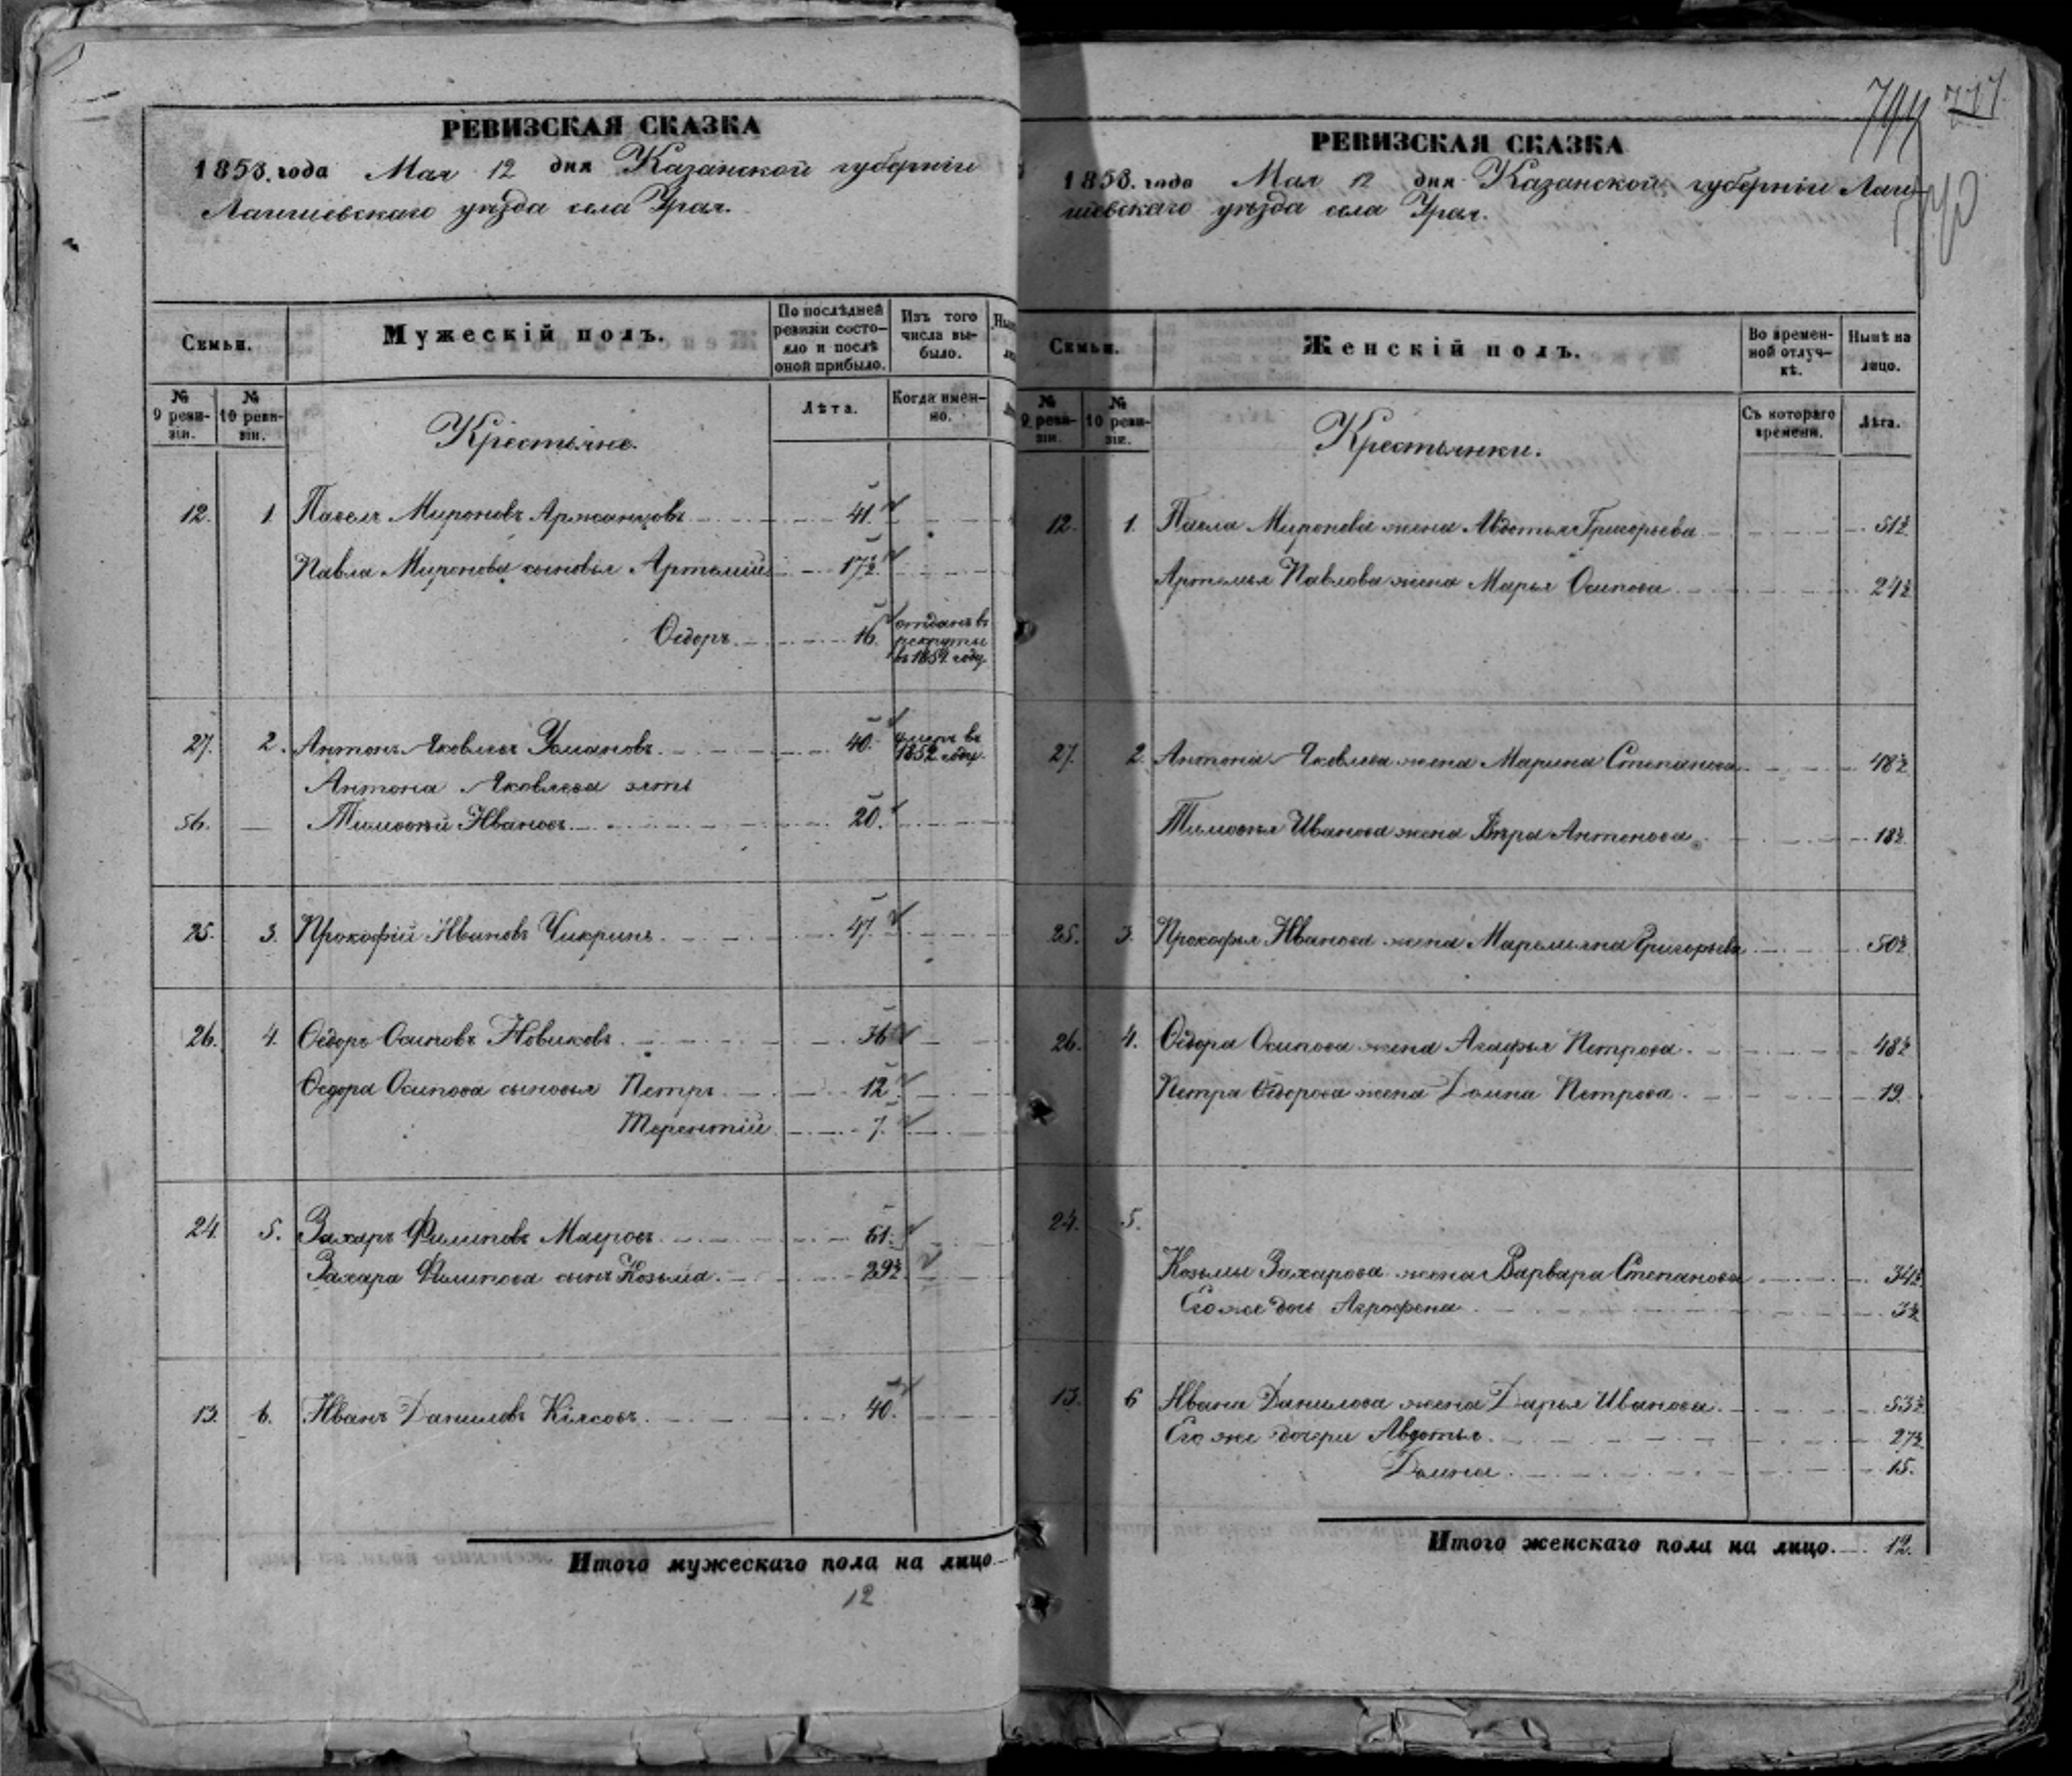 РЕВИЗСКАЯ СКАЗКА
1858. года Мая 12 дня Казанской губерніи
Лаишевскаго уѣзда села Урая.
Семьи.
Мужескій полъ.
По послѣдней ревизіи состояло и послѣ оной прибыло.
Изъ того числа выбыло.
№ 9 ревизіи.
№ 10 ревизіи.
Лѣта.
Когда именно.
Крестьяне.
12. 1. Павелъ Мироновъ Аржанцовъ 41.
Павла Миронова сыновья Артемій 17½
Ѳедоръ 16. отданъ въ рекруты въ 1854 году
27. 2. Антонъ Яковлевъ Улановъ 40. умеръ въ 1852 году
Антона Яковлева зять
56. — Тимоѳей Ивановъ 20.
25. 3. Прокофій Ивановъ Чикринъ 47.
26. 4. Ѳедоръ Осиповъ Новиковъ 36
Ѳедора Осипова сыновья Петръ 12
Терентій 7.
24. 5. Захаръ Филиповъ Мауров 61.
Захара Филипова сынъ Козьма 29½
13. 6. Иванъ Даниловъ 40.
Итого мужескаго пола на лицо
12
777.
РЕВИЗСКАЯ СКАЗКА
1858. года Мая 12 дня Казанской губерніи Лаи-
шевскаго уѣзда села Урая.
Семьи.
Женскій полъ.
Во временной отлучкѣ.
Нынѣ на лицо.
№ 9 ревизіи.
№ 10 ревизіи.
Съ котораго времени.
Лѣта.
Крестьянки.
12. 1. Павла Миронова жена Авдотья Григорьева 51½
Артемья Павлова жена Марья Осипова 24½
27. 2. Антона Яковлева жена Марина Степанова 48½
Тимоѳея Иванова жена Вѣра Антонова 18½
25. 3. Прокофья Иванова жена Маремьяна Григорьева 50½
26. 4. Ѳедора Осипова жена Агафья Петрова 48½
Петра Ѳедорова жена Домна Петрова 19.
24. 5.
Козьмы Захарова жена Варвара Степанова 34½
Его же дочь Агрофена 3½
13. 6 Ивана Данилова жена Дарья Иванова 53½
Его же дочери Авдотья 27½
Домна 15.
Итого женскаго пола на лицо. 12.